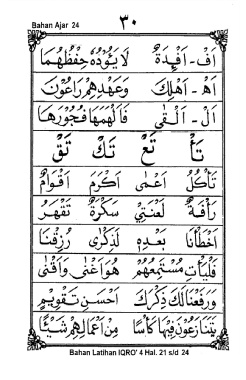 Bahan Ajar 24
٣٠
اَفْ - اَفْـِٕدَةٌ لَا يَـُٔوْدُهٗ حِفْظُهُمَا
اَهْ - اَهْلِكَ وَعَهْدِهِمْ رَاعُوْنَ
اَلْ - اَلْـقٰى فَاَلْهَمَهَا فُجُوْرَهَا
تَأْ تَعْ تَكْ تَقْ
تَأْكُلُ اَعْمٰى اَكْرَمَ اَقْوَامٌ
رَأْفَةٌ لَعْنَتِيْ سَكْرَةٌ تَقْهَرُ
اَخْطَأْنَا بَعْدِهٖ لَذِكْرٰى رُزِقْنَا
فَلْيَأْتِ مُسْتَمِعُهُمْ هُوَ اَغْنٰى وَاَقْنٰى
وَرَفَعْنَا لَكَ ذِكْرَكَ اَحْسَنِ تَقْوِيْمٍ
يَتَنَازَعُوْنَ فِيْهَا كَأْسًا مِنْ اَعْمَالِهِمْ شَيْـًٔا
Bahan Latihan IQRO' 4 Hal. 21 s/d 24